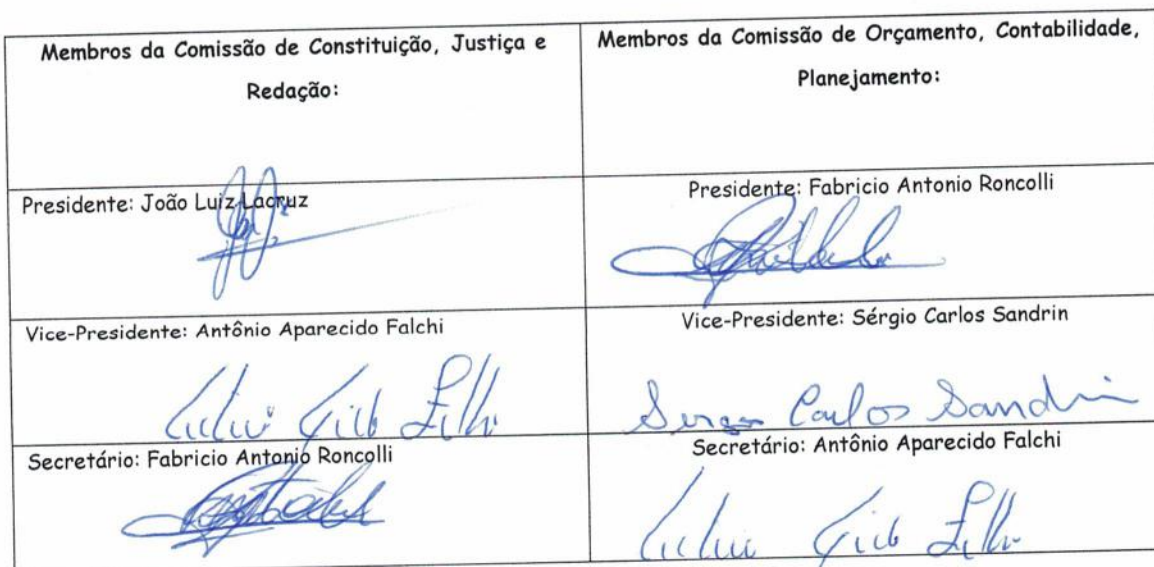 Membros da Comissão de Constituição, Justiça e
Redação:
Membros da Comissão de Orçamento, Contabilidade,
Planejamento:
Presidente: João Luiz Lacruz
Presidente: Fabricio Antonio Roncolli
Vice-Presidente: Antônio Aparecido Falchi
Vice-Presidente: Sérgio Carlos Sandrin
Sergio Carlos Sandrin
Secretário: Fabricio Antonio Roncolli
Secretário: Antônio Aparecido Falchi